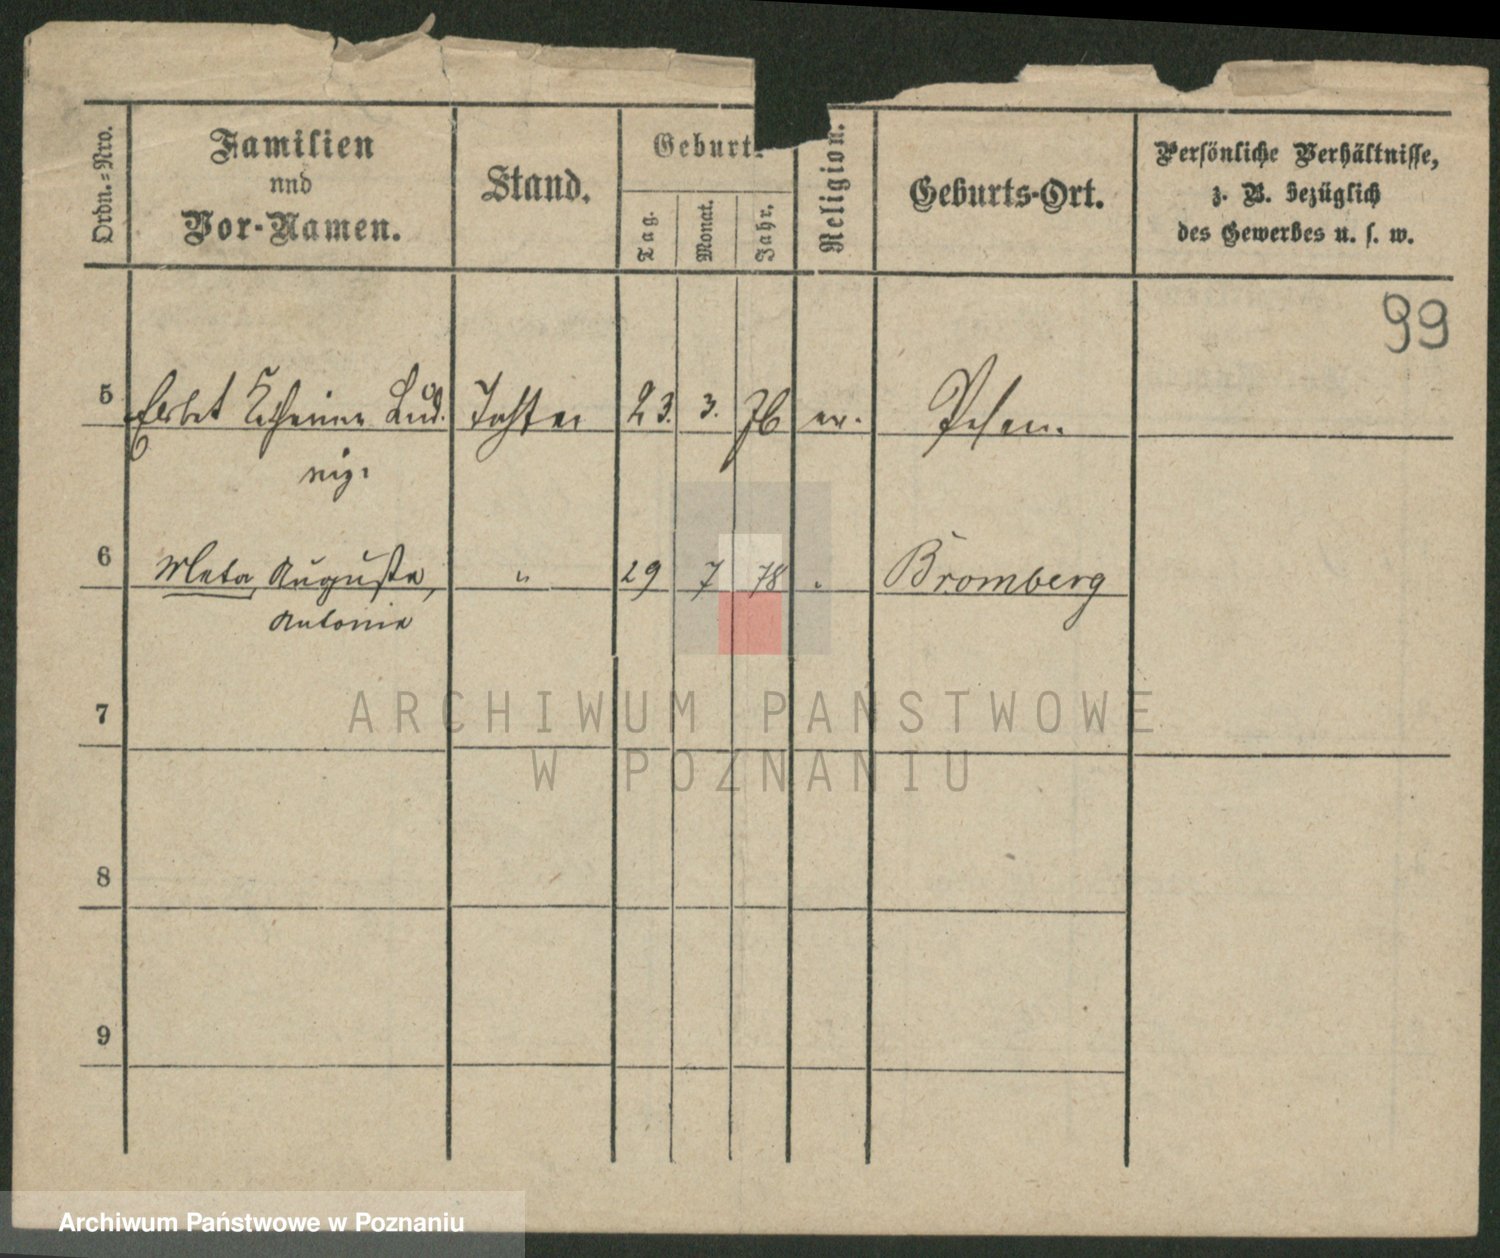 Ordn.=Nro.
Familien
nnd
Vor-Namen.
Stand.
Geburt
Tag.
Monat.
Jahr.
Religion.
Geburts-Ort.
Persönliche Verhältnisse,
z. B. bezüglich
des Gewerbes u. s. w.
99
5 Elsbet Katharina Lud. Tochter 23. 3. 76 ev. Posen.
wig.
6 Meta, Auguste, " 29 7 78 " Bromberg
Antonie
7
8
9
ARCHIWUM PAŃSTWOWE
W POZNANIU
Archiwum Państwowe w Poznaniu